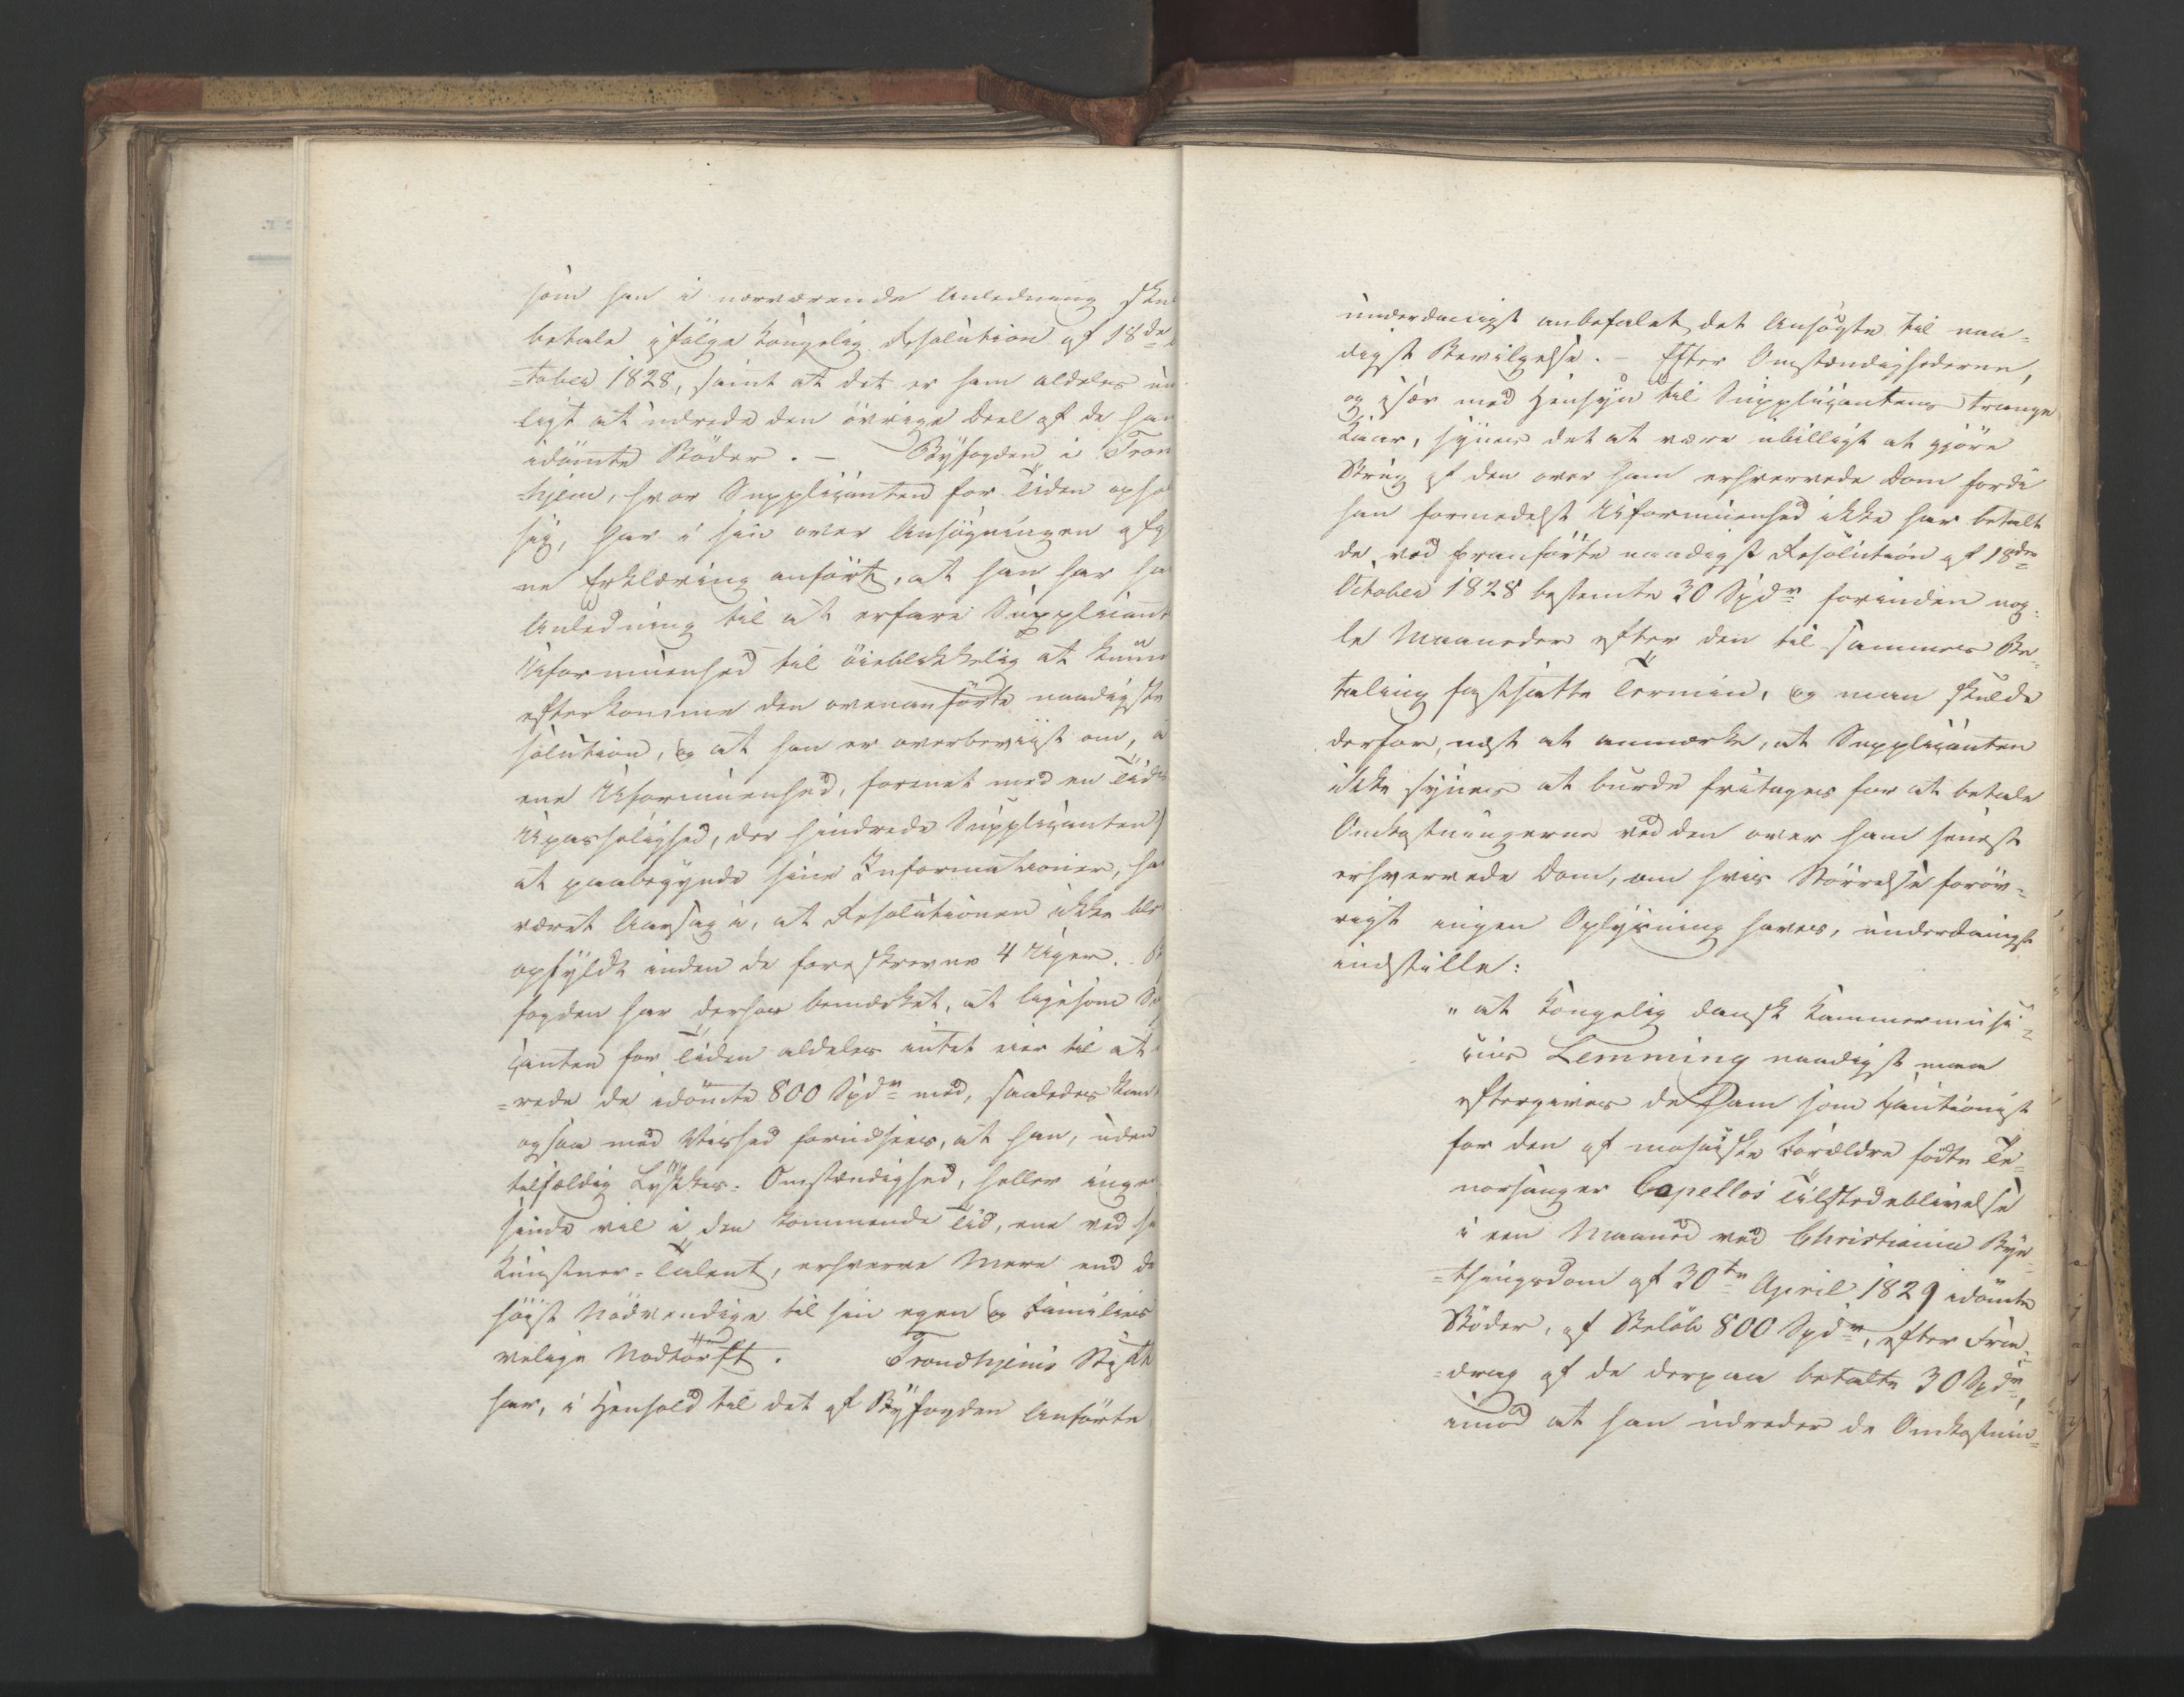 som han i nærværende Anledning skul
betale ifölge Kongelig Resolution af 18de
=tober 1828, samt at det er ham aldeles um
ligt at udrede den övrige Deel af de ham
idömte Böder. – Byfogden i Tron
=hjem, hvor Supplicanten for Tiden ophol
sig, har i sin over Ansögningen afg
ne Erklæring anfört, at han har ha
Anledning til at erfare Supplicant
Uformuenhed til öieblikkelig at kunne
efterkomme den ovenanförte naadigste
solution, og at han er overbeviist om, a
ene Uformuenhed, forenet med en Tids
Upasselighed, der hindrede Supplicanten
at paabegynde sine Informationer, ha
været Aarsag i, at Resolutionen ikke blev
opfyldt inden de foreskrevne 4 Uger. B
fogden har derhos bemærket, at ligesom Su
canten for Tiden aldeles intet eier til at
=rede de idömte 800 Spdr med, saaledes kan
ogsaa med Vished forudsees, at han, uden
tilfældig Lykkes-Omstændighed, heller inge
sinde vil i den kommende Tid, ene ved si
Kunstner-Talent, erhverve Mere end de
höist Nödvendige til sin egen og Families
velige Nödtörft. Trondhjems Stift
har, i Henhold til det af Byfogden Anförte
underdanigst anbefalet det Ansögte til naa=
digst Bevilgelse. – Efter Omstændighederne,
og især med Hensyn til Supplicantens trange
Kaar, synes det at være ubilligt at gjöre
Brug af den over ham erhvervede Dom fordi
han formedelst Uformuenhed ikke har betalt
de ved franförte naadigst Resolution af 18de
October 1828 bestemte 30 Spdr forinden nog=
le Maaneder efter den til sammes Be=
taling fastsatte Termin, og man skulde
derfor, næst at anmærke, at Supplicanten
ikke synes at burde fritages for at betale
Omkostningerne ved den over ham senest
erhvervede Dom, om hvis Störrelse foröv=
rigt ingen Oplysning haves, underdanigst
indstille:
"at Kongelig dansk Kammermusi=
cus Lemming naadigst maa
eftergives de ham som Cautionist
for den af mosaiske Forældre födte Te=
norsanger Capellos Tilstedeblivelse
i een Maaned ved Christiania Bye=
=thingsdom af 30te April 1829 idömte
Böder, af Belöb 800 Spdr, efter Fra=
=drag af de derpaa betalte 30 Spdr,
imod at han udreder de Omkostnin=